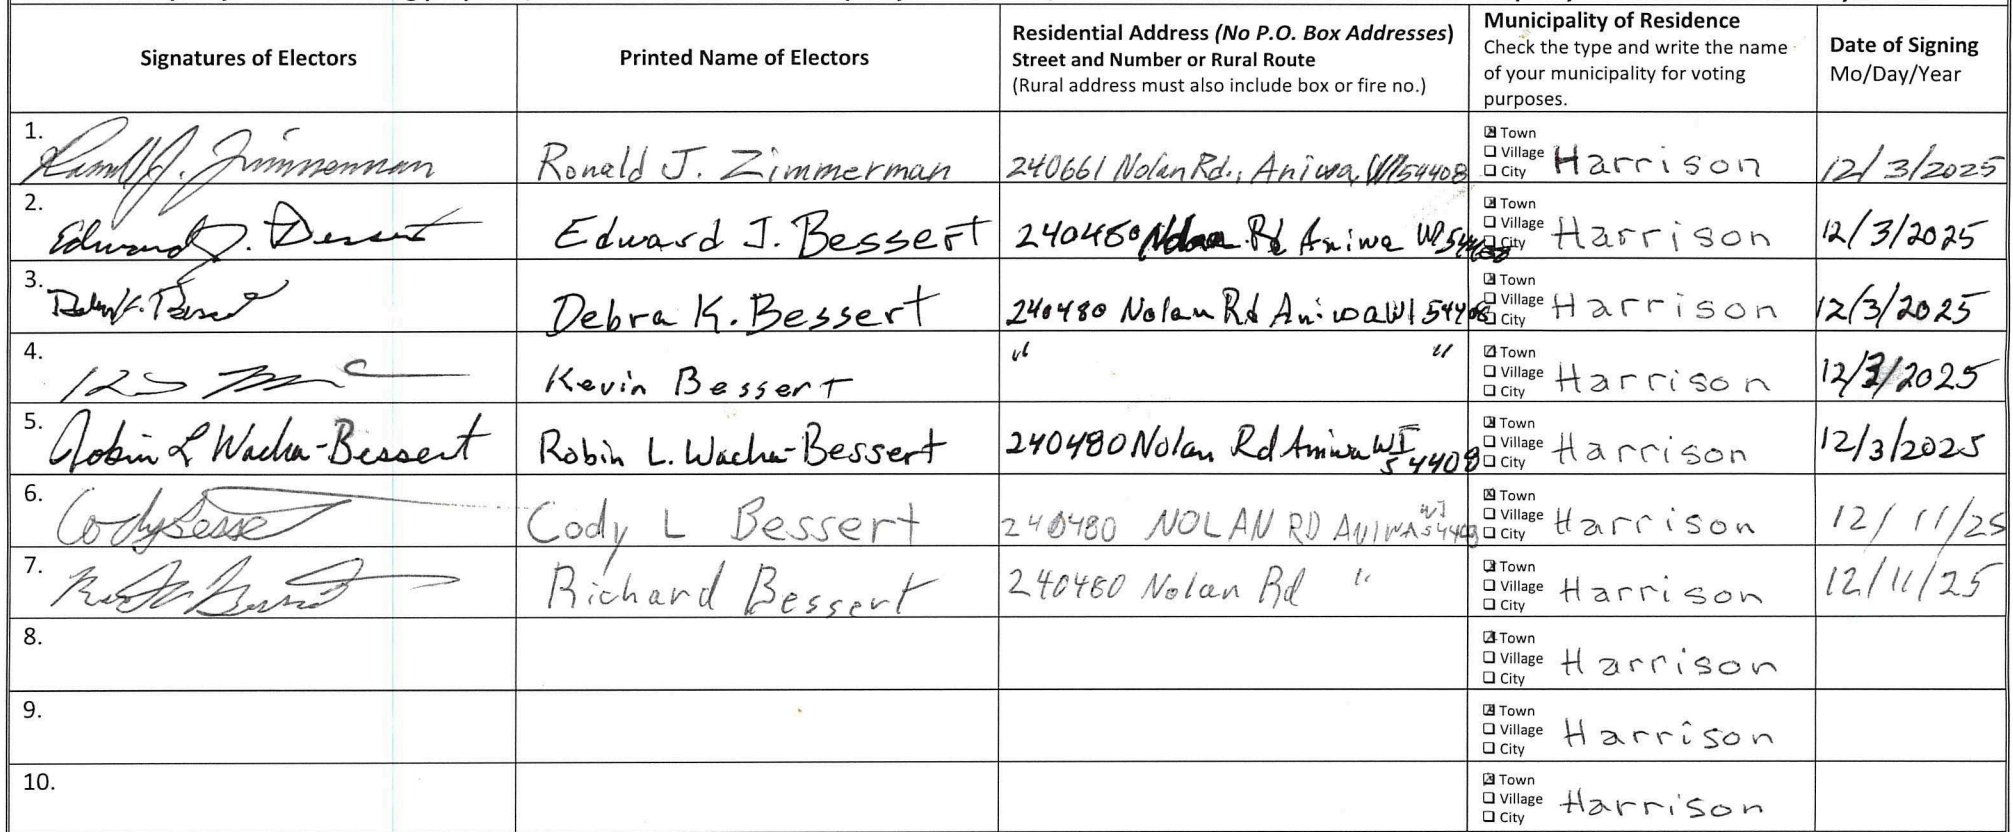 Signatures of Electors
Printed Name of Electors
Residential Address (No P.O. Box Addresses)
Street and Number or Rural Route
(Rural address must also include box or fire no.)
Municipality of Residence
Check the type and write the name
of your municipality for voting
purposes.
Date of Signing
Mo/Day/Year
1. Zimmerman Ronald J. Zimmerman 240661 Nolan Rd., Aniwa, WI 54408 Town Village City Harrison 12/3/2025
2. Edward J. Bessert Edward J. Bessert 240480 Nolan Rd Aniwa WI 54408 Town Village City Harrison 12/3/2025
3. Debra K. Bessert 240480 Nolan Rd Aniwa WI 54408 Town Village City Harrison 12/3/2025
4. Kevin Bessert " " Town Village City Harrison 12/3/2025
5. Robin L Wacha-Bessert Robin L. Wacha-Bessert 240480 Nolan Rd Aniwa WI 54408 Town Village City Harrison 12/3/2025
6. Cody Besse Cody L Bessert 240480 NOLAN RD ANIWA WI 54408 Town Village City Harrison 12/11/25
7. Richard Bessert 240480 Nolan Rd " Town Village City Harrison 12/11/25
8. Town Village City Harrison
9. Town Village City Harrison
10. Town Village City Harrison